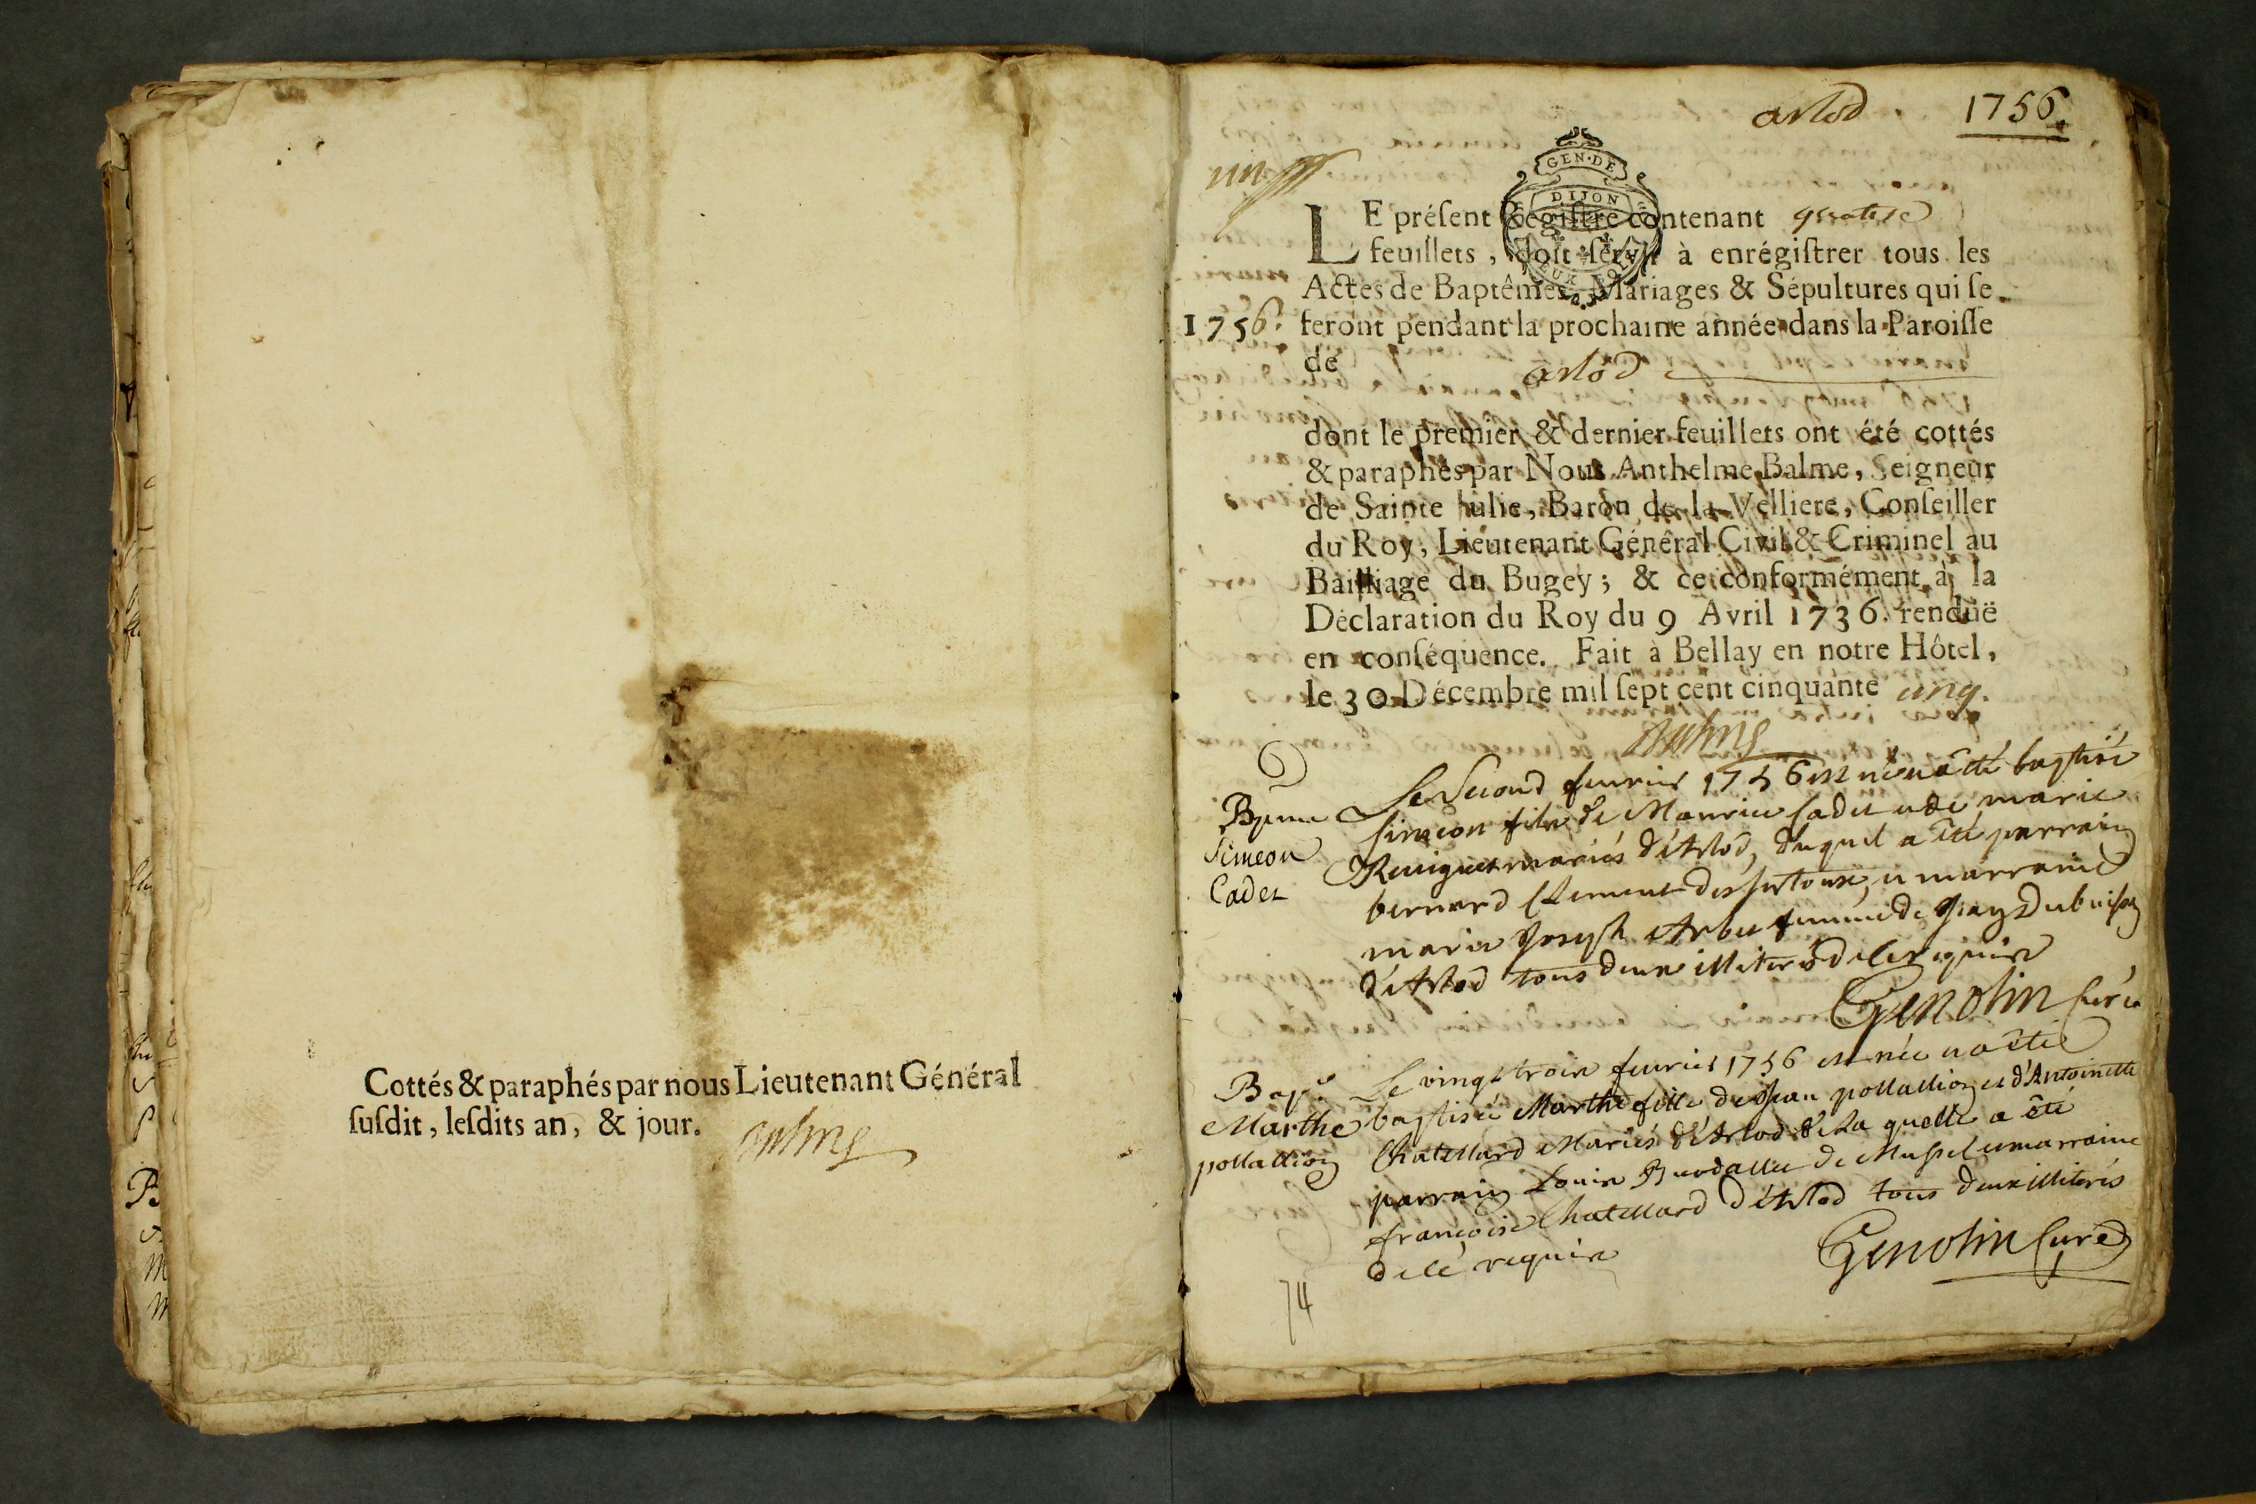 Cottés & paraphés par nous Lieutenant Général
ſuſdit, leſdits an, & jour.
Balme
arlod 1756.
GEN·DE
DIJON
LE préſent Regiſtre contenant quatre
feuillets, doit ſervir à enrégiſtrer tous les
Actes de Baptêmes Mariages & Sépultures qui ſe
1756. feront pendant la prochaine année dans la Paroiſſe
de arlod
dont le premier & dernier feuillets ont été cottés
& paraphés par Nous Anthelme Balme, Seigneur
de Sainte Julie, Baron de la Velliere, Conſeiller
du Roy, Lieutenant Général Civil & Criminel au
Bailliage du Bugey; & ce conformément à la
Déclaration du Roy du 9 Avril 1736. renduë
en conſéquence. Fait à Bellay en notre Hôtel,
le 30 Décembre mil ſept cent cinquante cinq.
Balme
Simeon
Cadet
Le Second fevrier 1756 est né et a été baptisé
simeon fils de Maurice Cadet et de marie
mariés d'Arlod, duquel a été parrain
bernard Clement et marraine
marie Joseph femme de
d'Arlod tous deux illiterés de ce requis
Genolin Curé
Bap.e
Marthe
pollallion
Le vingt trois fevrier 1756 est née et a été
baptisée Marthe fille de Jean pollallion et d'Antoinette
Chatellard Mariés d'Arlod de la quelle a été
parrain Louis de Mussel et marraine
françoise Chatellard d'Arlod tous deux illiterés
de ce requis
Genolin Curé
74